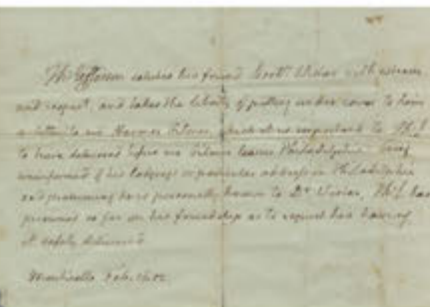 Th Jefferson salutes his friend Doctr. Wistar with esteem
and respect, and takes the liberty of putting under cover to him
a letter to mr Harmer Gilmer, which it is important to Th J.
to have delivered before mr Gilmer leaves Philadelphia. being
uninformed of his lodgings or particular address in Philadelphia
and presuming he is personally known to Dr. Wistar, Th J. has
presumed so far on his friendship as to request his having
it safely delivered.
Monticello Feb.